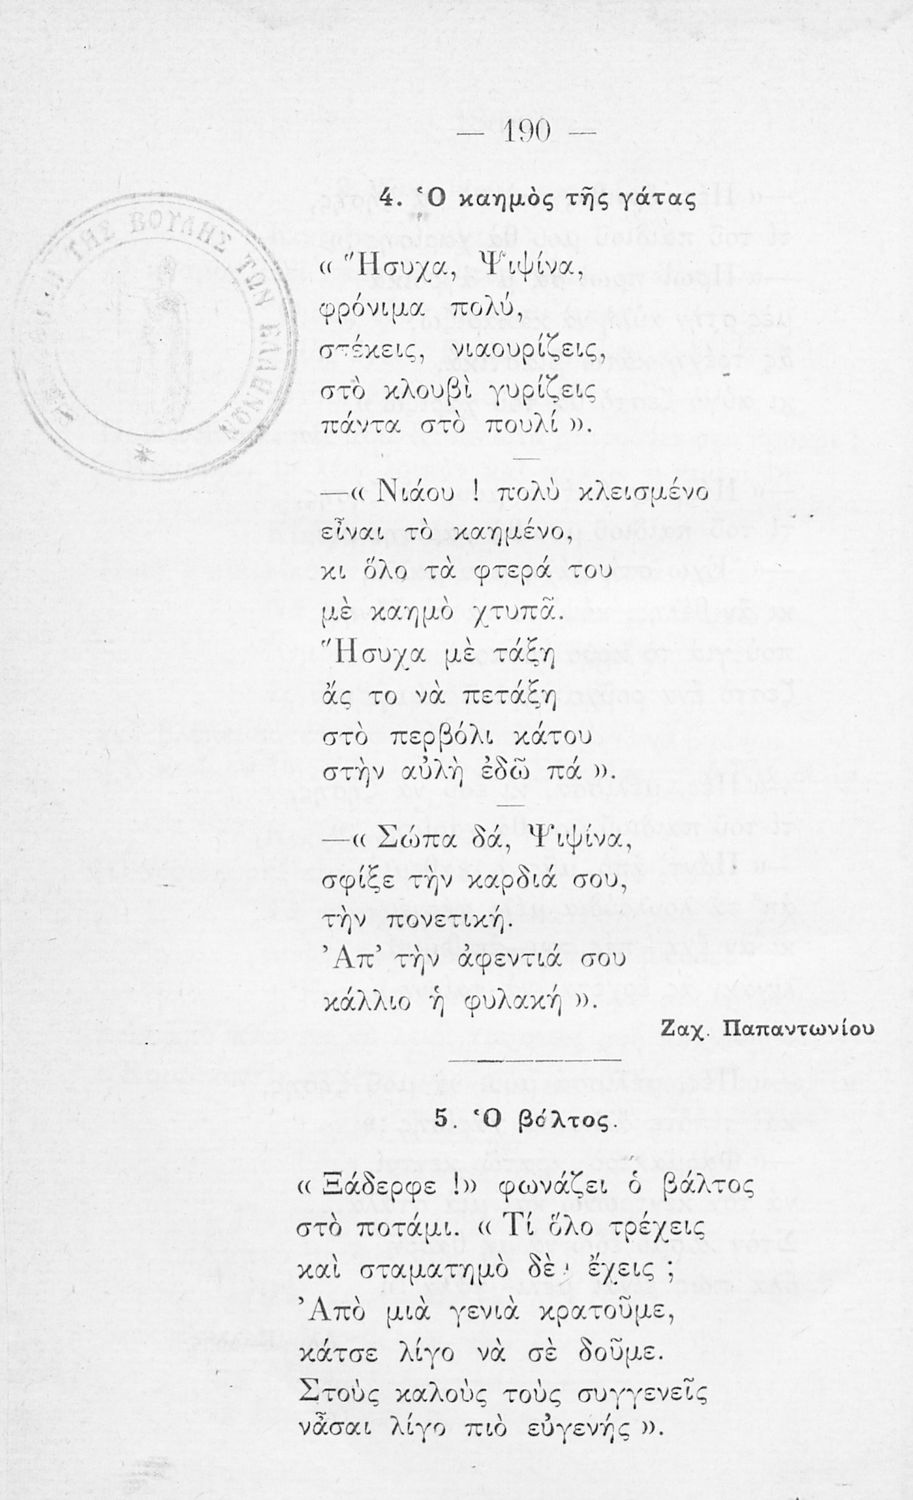 — 190 —
4. Ὁ καημὸς τῆς γάτας
« Ἥσυχα, Ψιψίνα,
φρόνιμα πολύ,
στέκεις, νιαουρίζεις,
στὸ κλουβὶ γυρίζεις
πάντα στὸ πουλί ».
—« Νιάου ! πολὺ κλεισμένο
εἶναι τὸ καημένο,
κι ὅλο τὰ φτερά του
μὲ καημὸ χτυπᾶ.
Ἥσυχα μὲ τάξη
ἄς το νὰ πετάξη
στὸ περβόλι κάτου
στὴν αὐλὴ ἐδῶ πά ».
—« Σώπα δά, Ψιψίνα,
σφίξε τὴν καρδιά σου,
τὴν πονετική.
Ἀπ’ τὴν ἀφεντιά σου
κάλλιο ἡ φυλακή ».
Ζαχ. Παπαντωνίου
5. Ὁ βάλτος.
« Ξάδερφε !» φωνάζει ὁ βάλτος
στὸ ποτάμι. « Τί ὅλο τρέχεις
καὶ σταματημὸ δὲν ἔχεις ;
Ἀπὸ μιὰ γενιὰ κρατοῦμε,
κάτσε λίγο νὰ σὲ δοῦμε.
Στοὺς καλοὺς τοὺς συγγενεῖς
νἆσαι λίγο πιὸ εὐγενής ».
ΤΗΣ ΒΟΥΛΗΣ ΤΩΝ ΕΛΛΗΝΩΝ